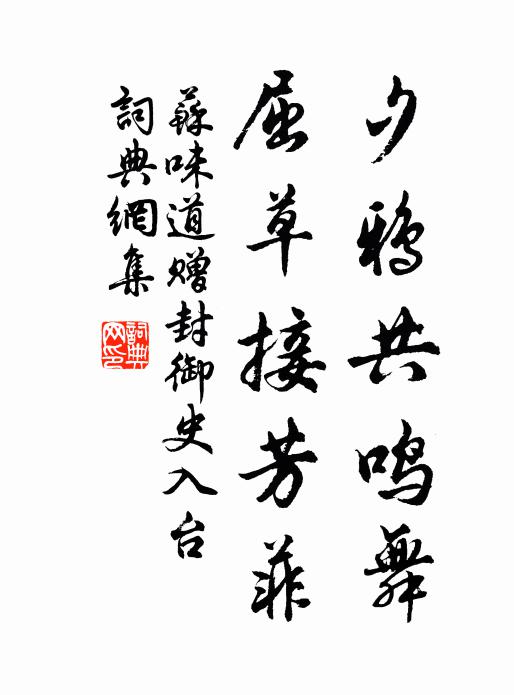 夕鸦共鸣舞
屈草接芳菲
蘇味道赠封御史入台
詞典網集
詞典網印